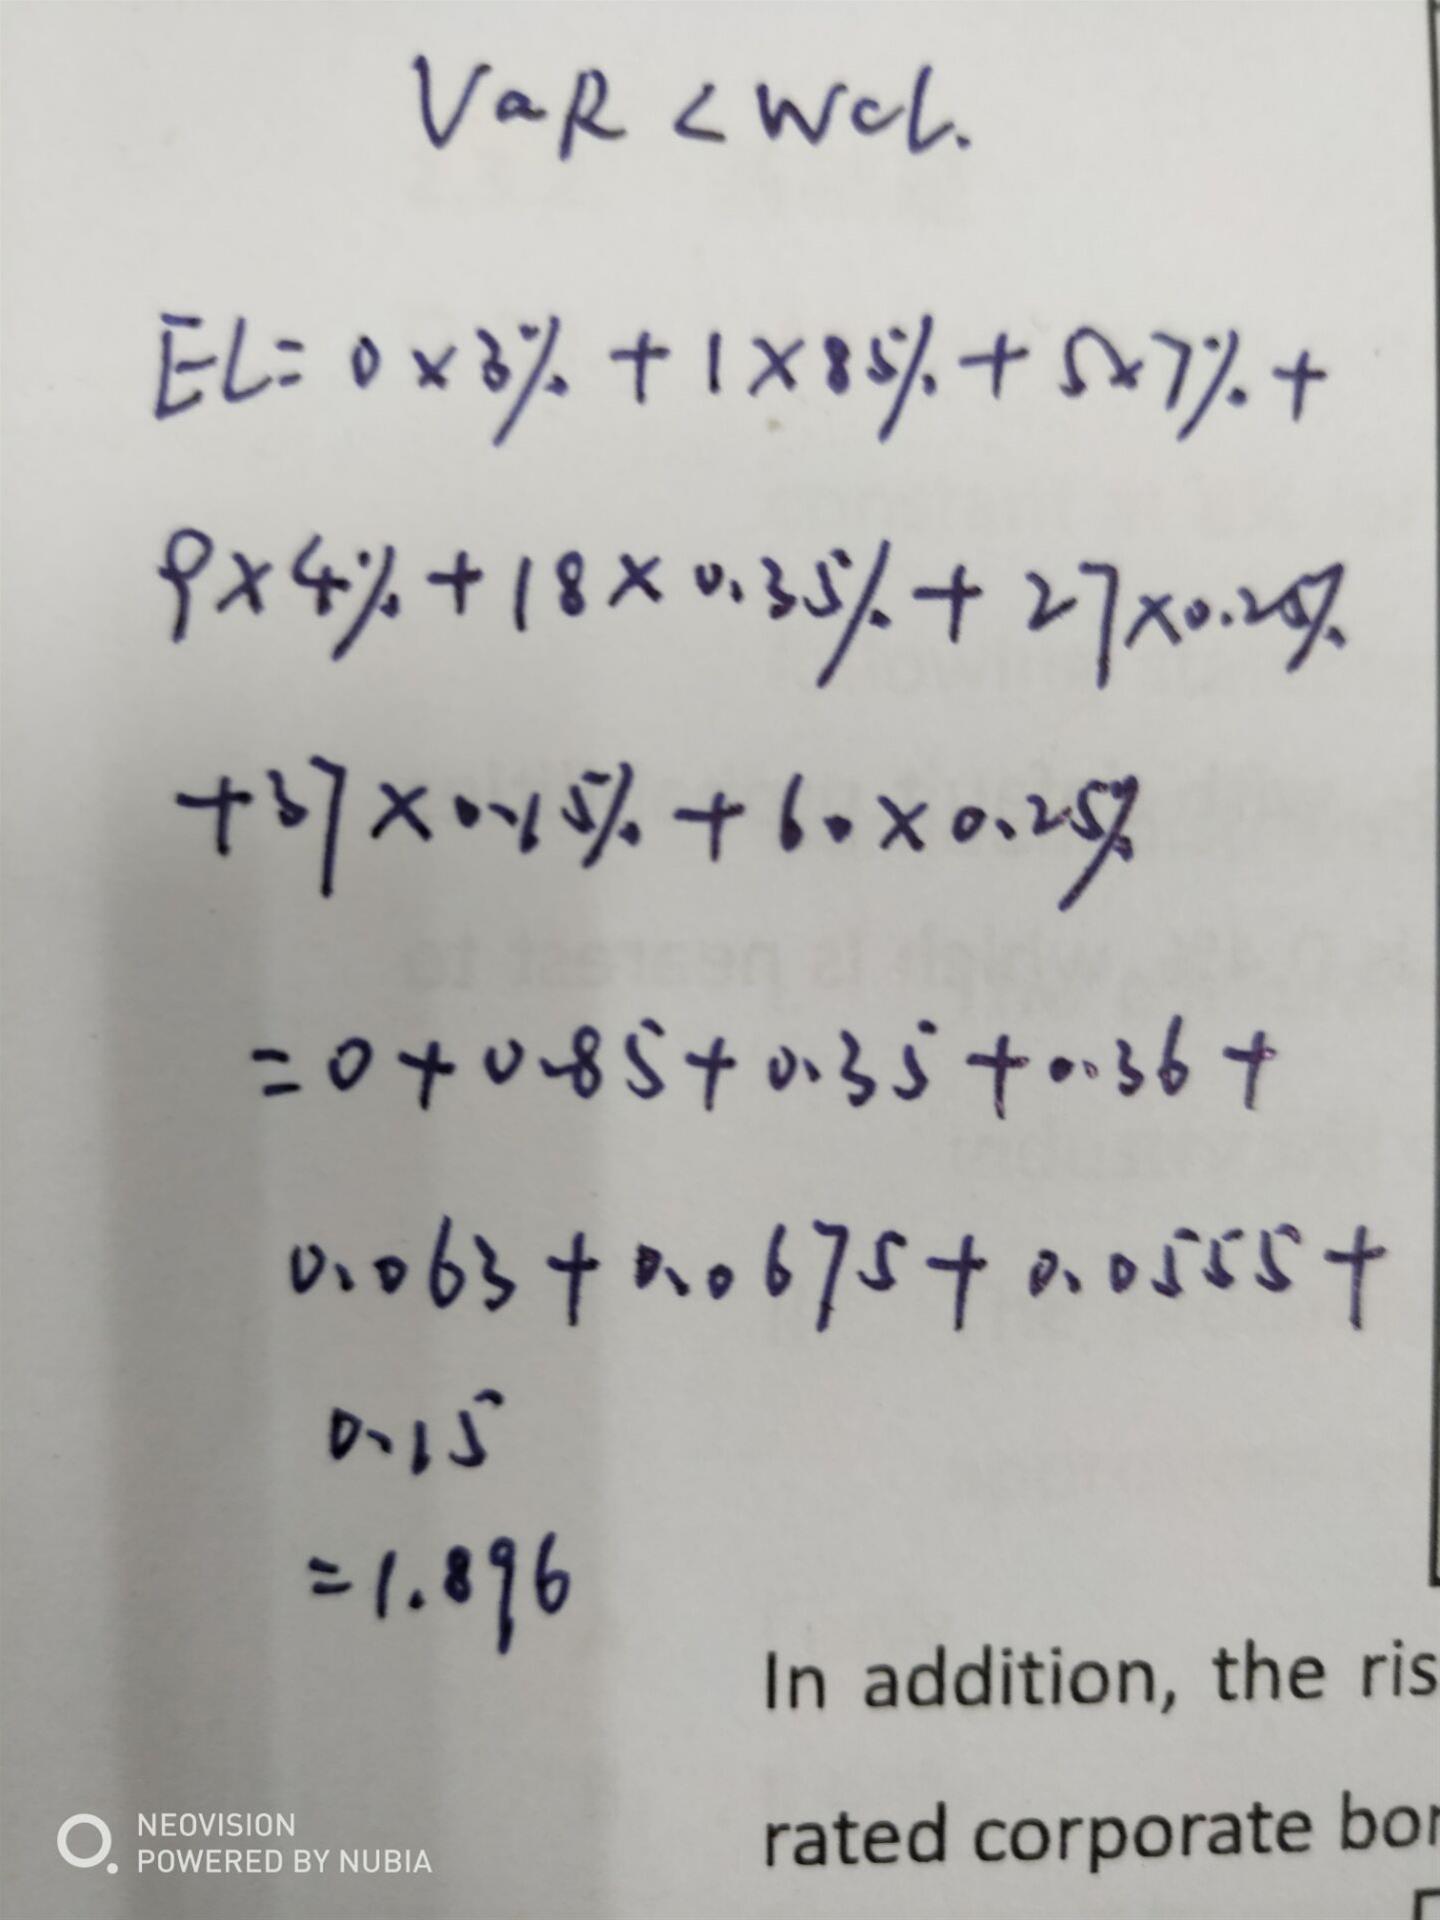 VaR < WCL.
EL= 0 x 3% + 1 x 85% + 5x7% +
9 x 4% + 18 x 0.35% + 27 x 0.25%
+37 x 0.15% + 60 x 0.25%
= 0 + 0.85 + 0.35 + 0.36 +
0.063 + 0.0675 + 0.0555 +
0.15
= 1.896
In addition, the ris
rated corporate bor
NEOVISION
POWERED BY NUBIA